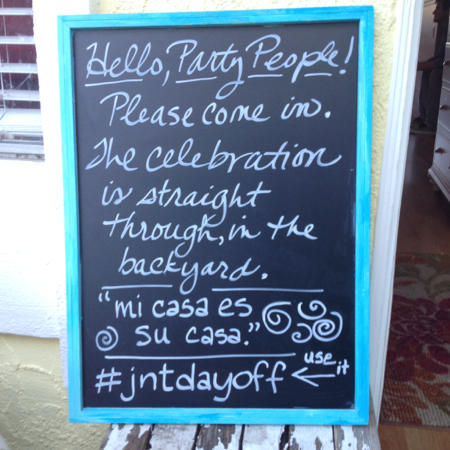 Hello, Party People!
Please come in.
The celebration
is straight
through, in the
backyard.
"mi casa es
su casa."
#jntdayoff ← use it